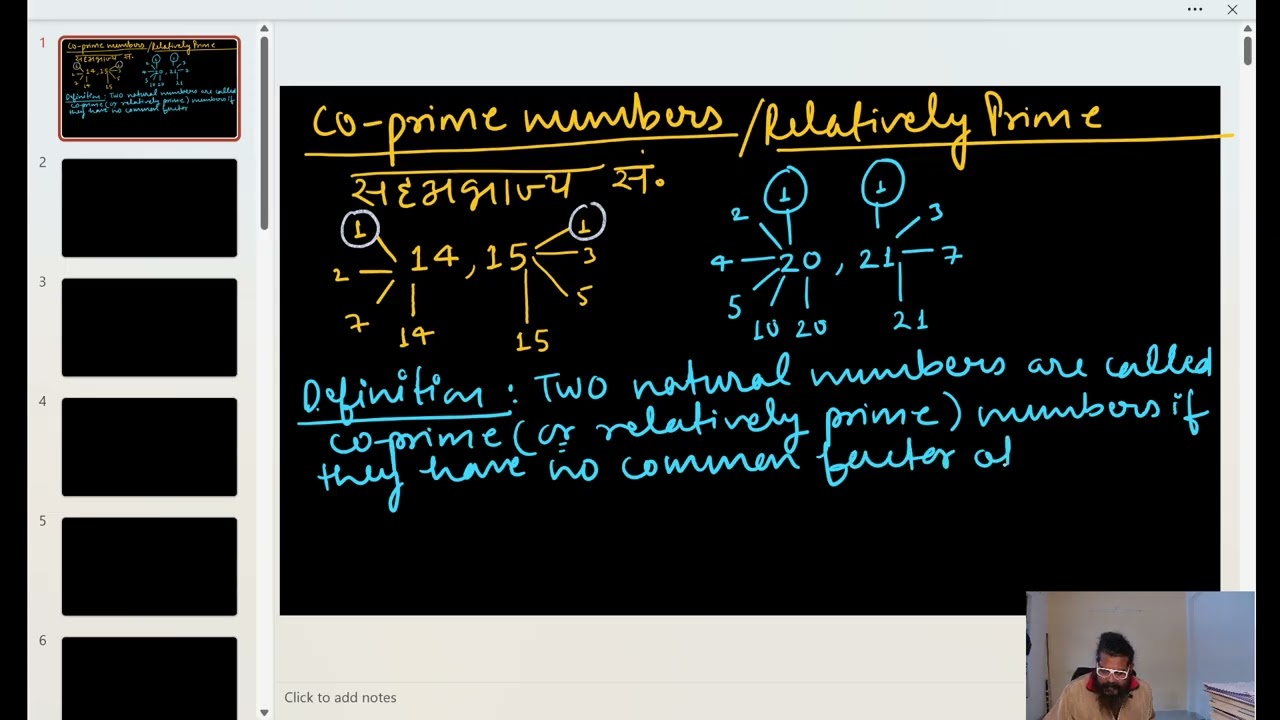 Co-prime numbers / Relatively Prime
सहअभाज्य सं.
1 1 1 1
2 14, 15 3 2 20, 21 3
7 14 15 5 4 5 10 20 7 21
Definition : Two natural numbers are called
co-prime (or relatively prime) numbers if
they have no common factor ot
1
2
3
4
5
6
Click to add notes